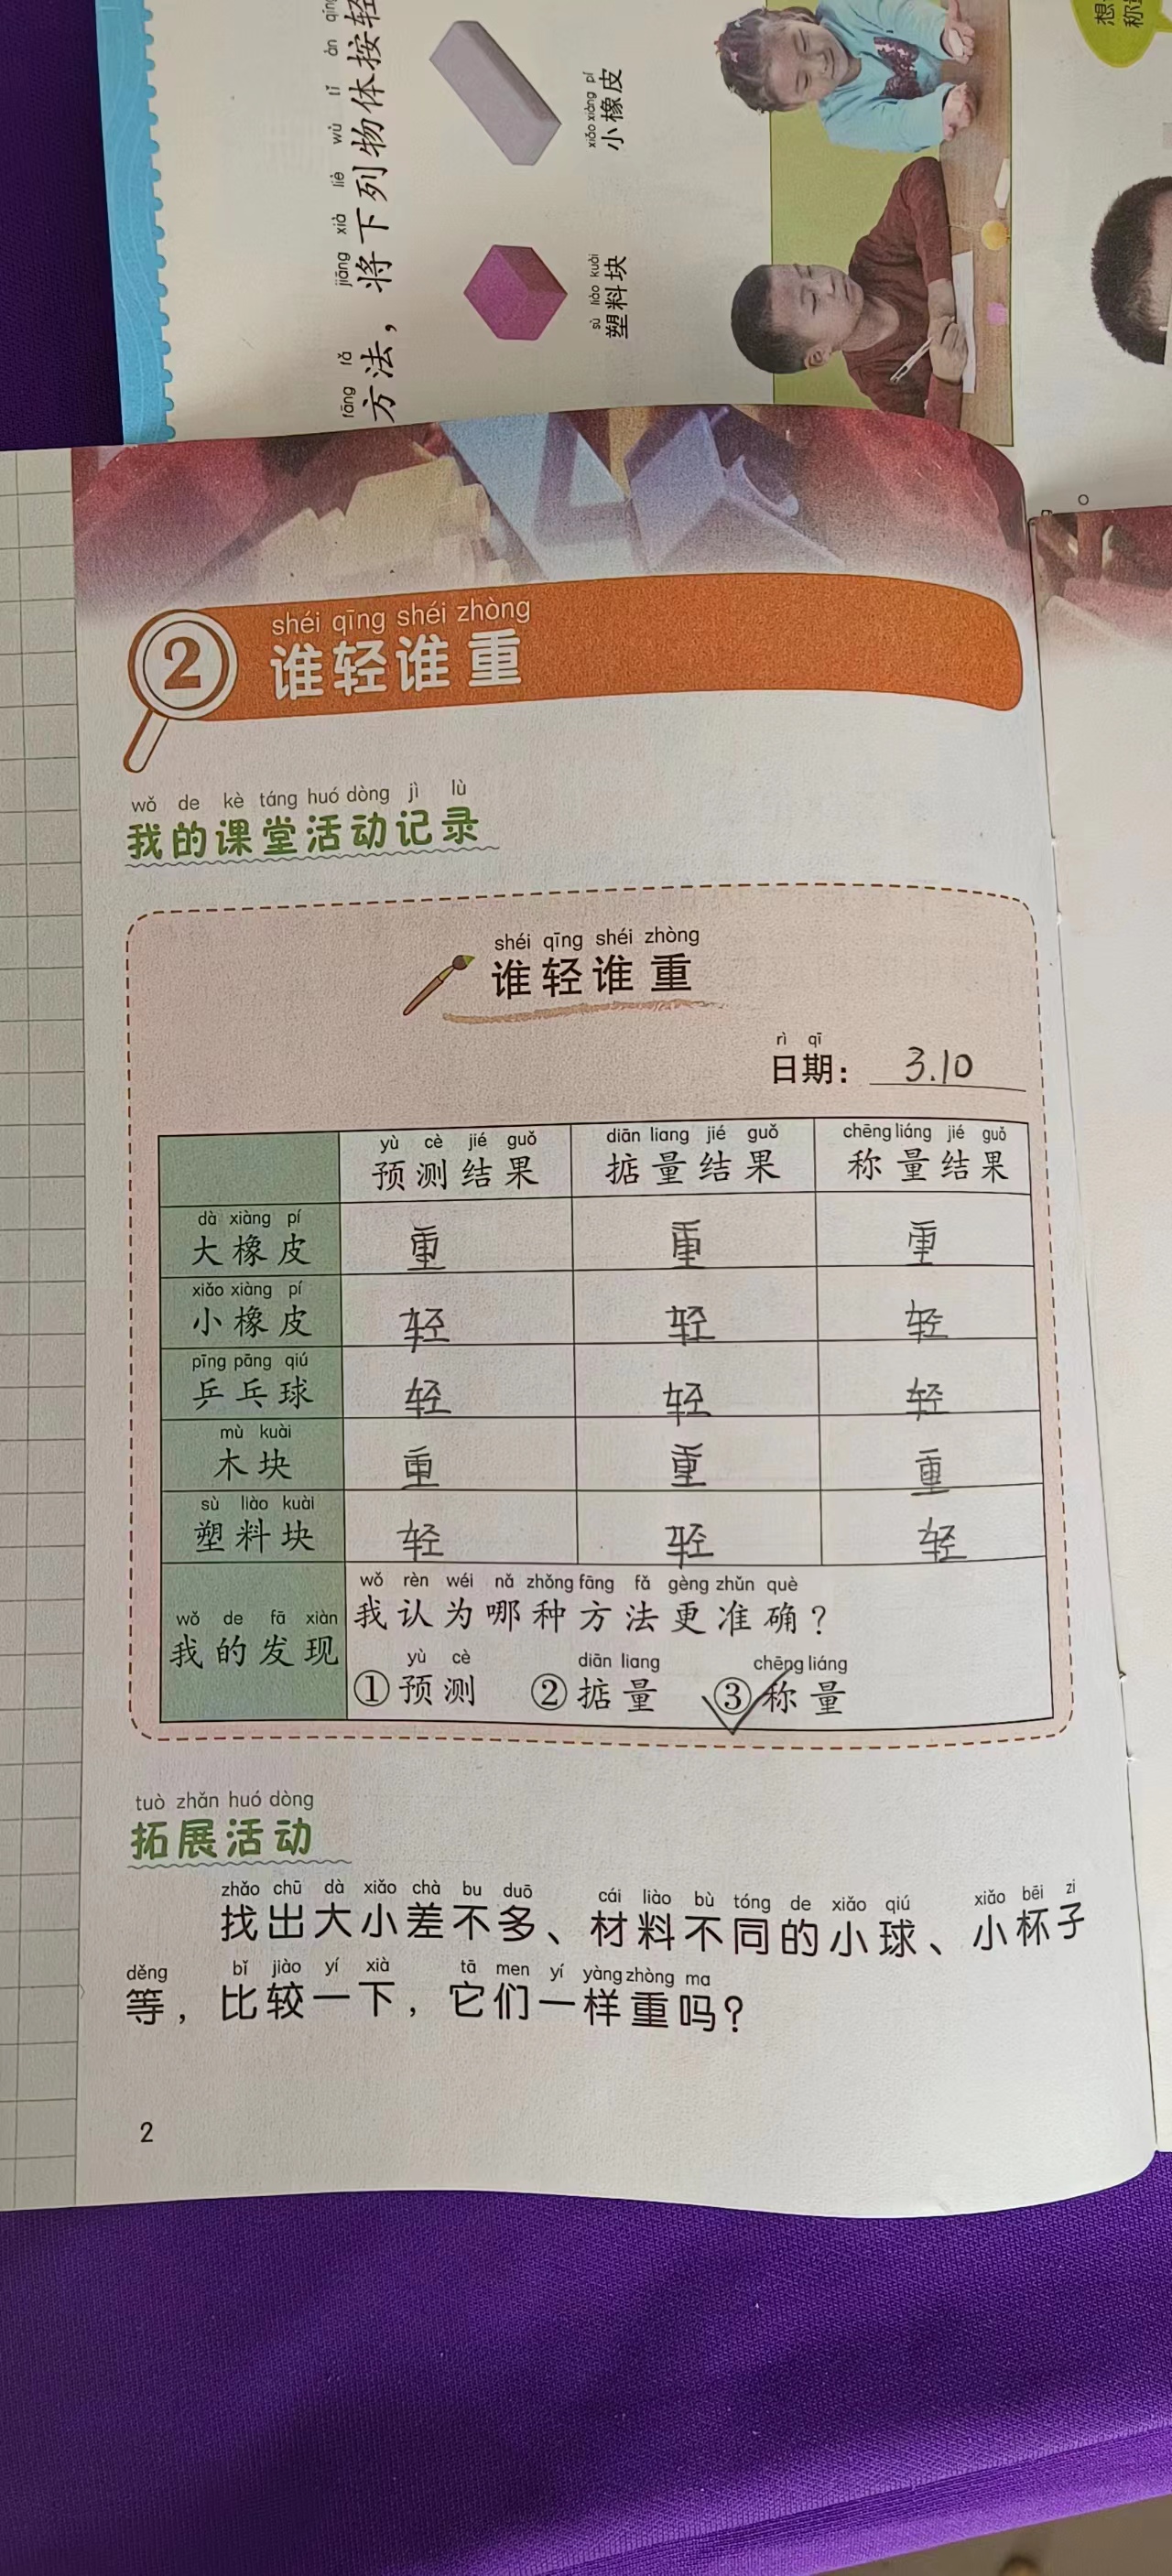 fāng fǎ jiāng xià liè wù tǐ àn qīng
方法，将下列物体按轻
xiǎo xiàng pí
小橡皮
sù liào kuài
塑料块
想
称
2
shéi qīng shéi zhòng
谁轻谁重
wǒ de kè táng huó dòng jì lù
我的课堂活动记录
shéi qīng shéi zhòng
谁轻谁重
rì qī
日期： 3.10
yù cè jié guǒ diān liang jié guǒ chēng liáng jié guǒ
预测结果 掂量结果 称量结果
dà xiàng pí
大橡皮 重 重 重
xiǎo xiàng pí
小橡皮 轻 轻 轻
pīng pāng qiú
乒乓球 轻 轻 轻
mù kuài
木块 重 重 重
sù liào kuài
塑料块 轻 轻 轻
wǒ de fā xiàn
我的发现
wǒ rèn wéi nǎ zhǒng fāng fǎ gèng zhǔn què
我认为哪种方法更准确？
yù cè diān liang chēng liáng
①预测 ②掂量 ③称量
tuò zhǎn huó dòng
拓展活动
zhǎo chū dà xiǎo chà bu duō cái liào bù tóng de xiǎo qiú xiǎo bēi zi
找出大小差不多、材料不同的小球、小杯子
děng bǐ jiào yí xià tā men yí yàng zhòng ma
等，比较一下，它们一样重吗？
2